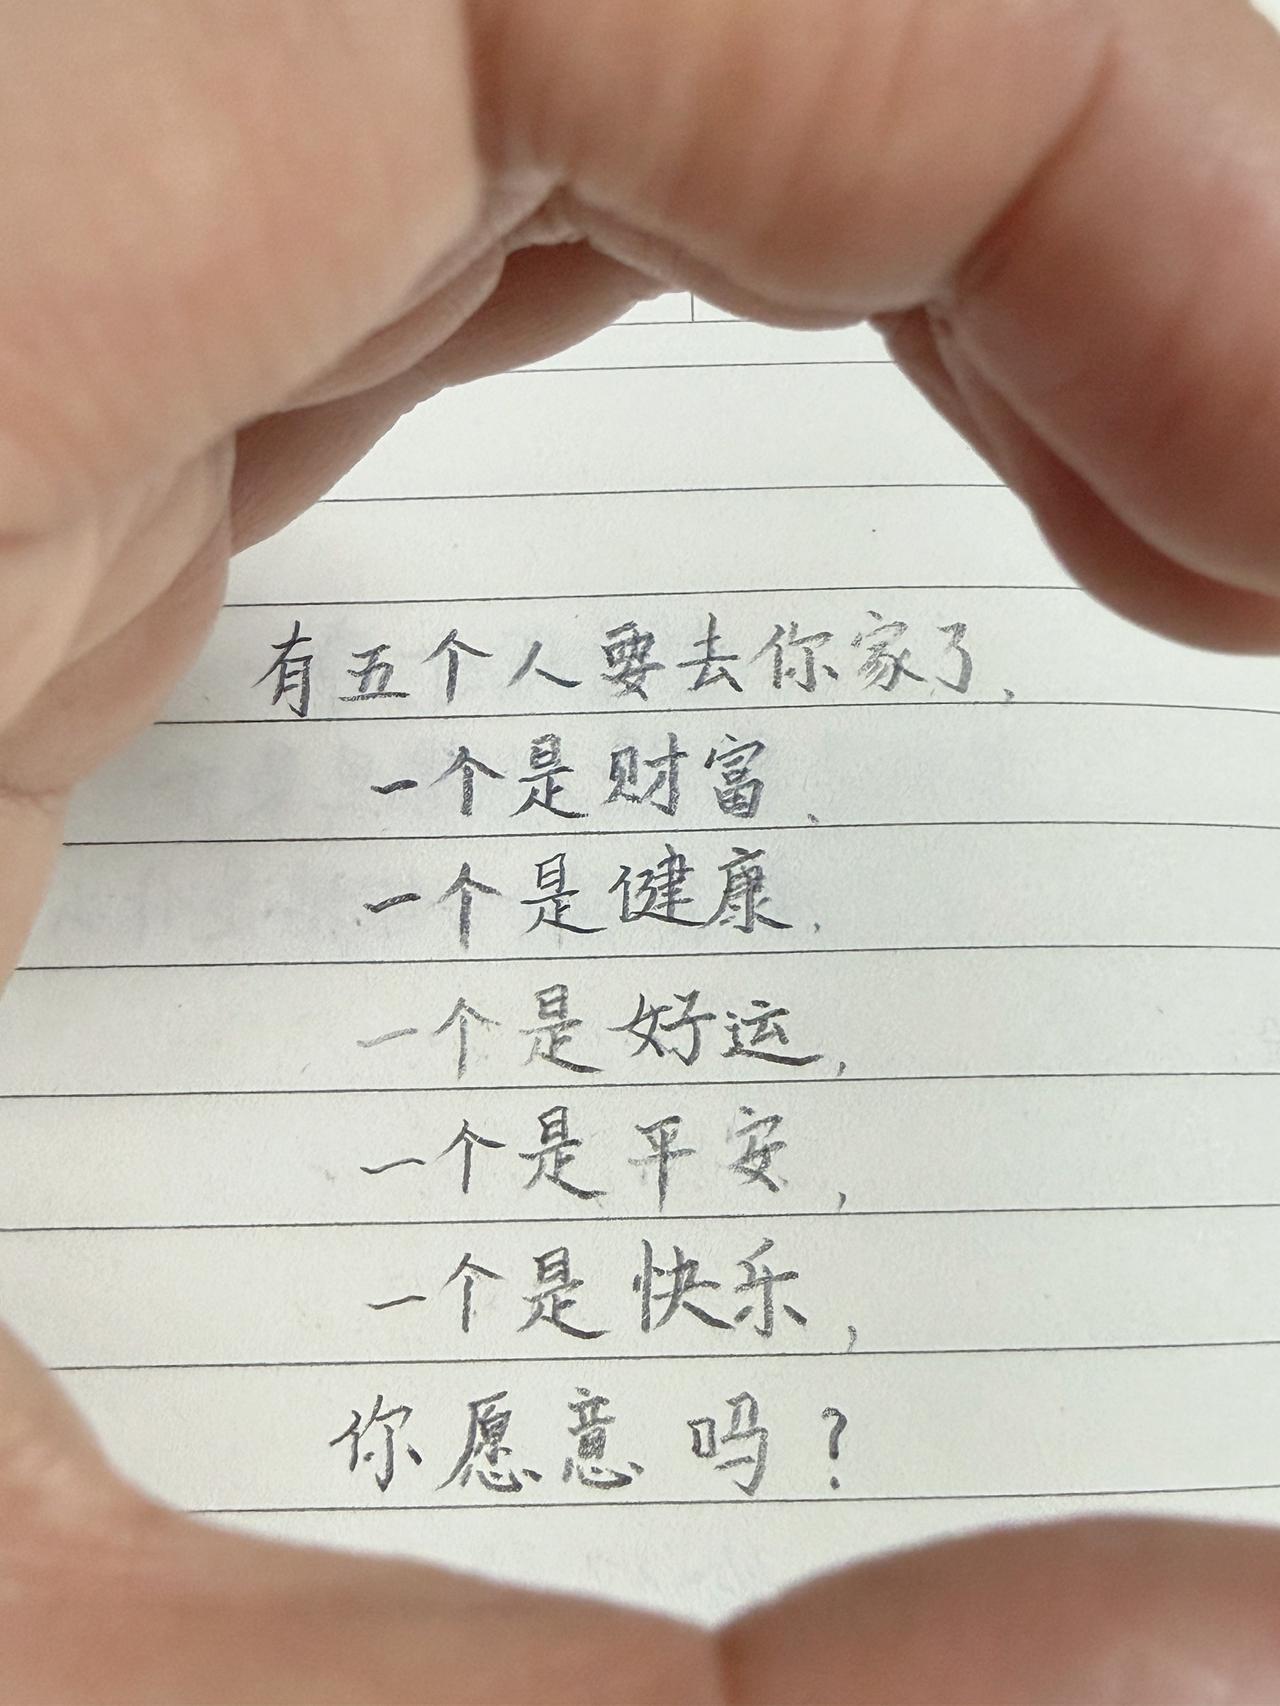 有五个人要去你家了,
一个是财富、
一个是健康,
一个是好运,
一个是平安,
一个是快乐,
你愿意吗?